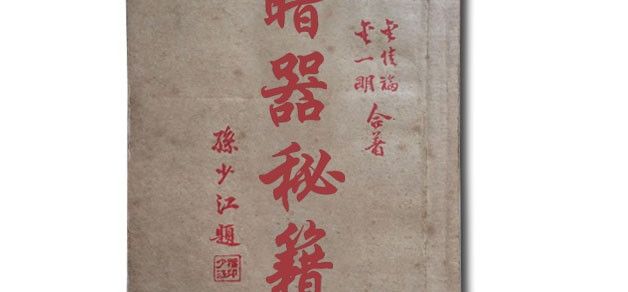 金佳福
金一明
合著
暗器秘籍
孫少江題